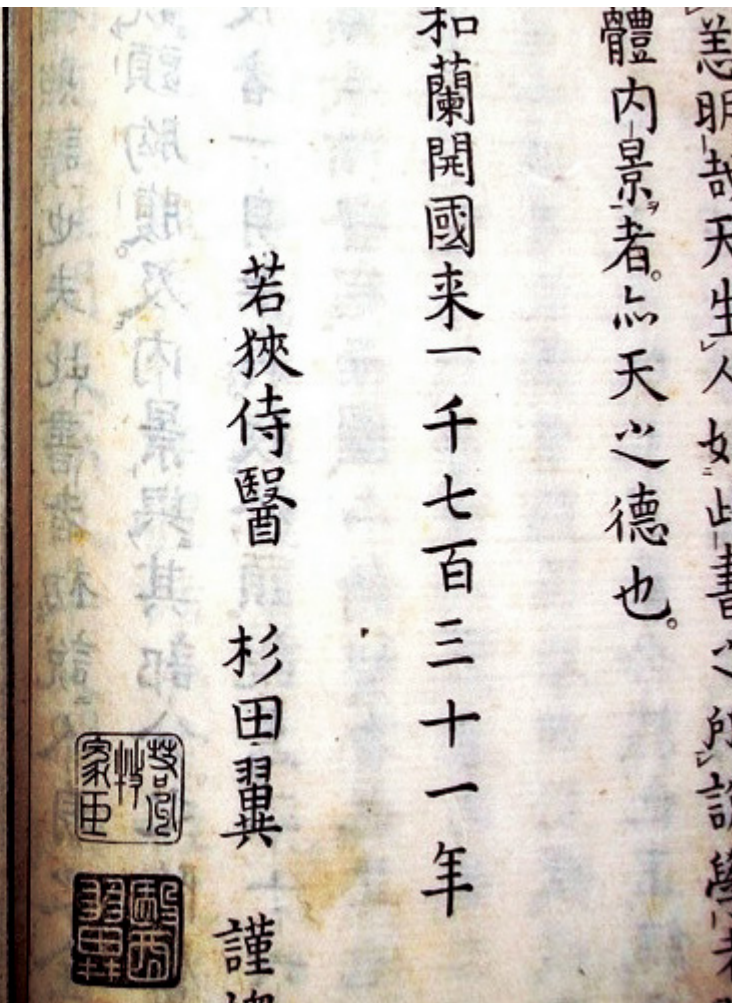 明哉天生人如此書之所説學者
體内景者。亦天之德也。
和蘭開國来一千七百三十一年
若狹侍醫 杉田翼 謹